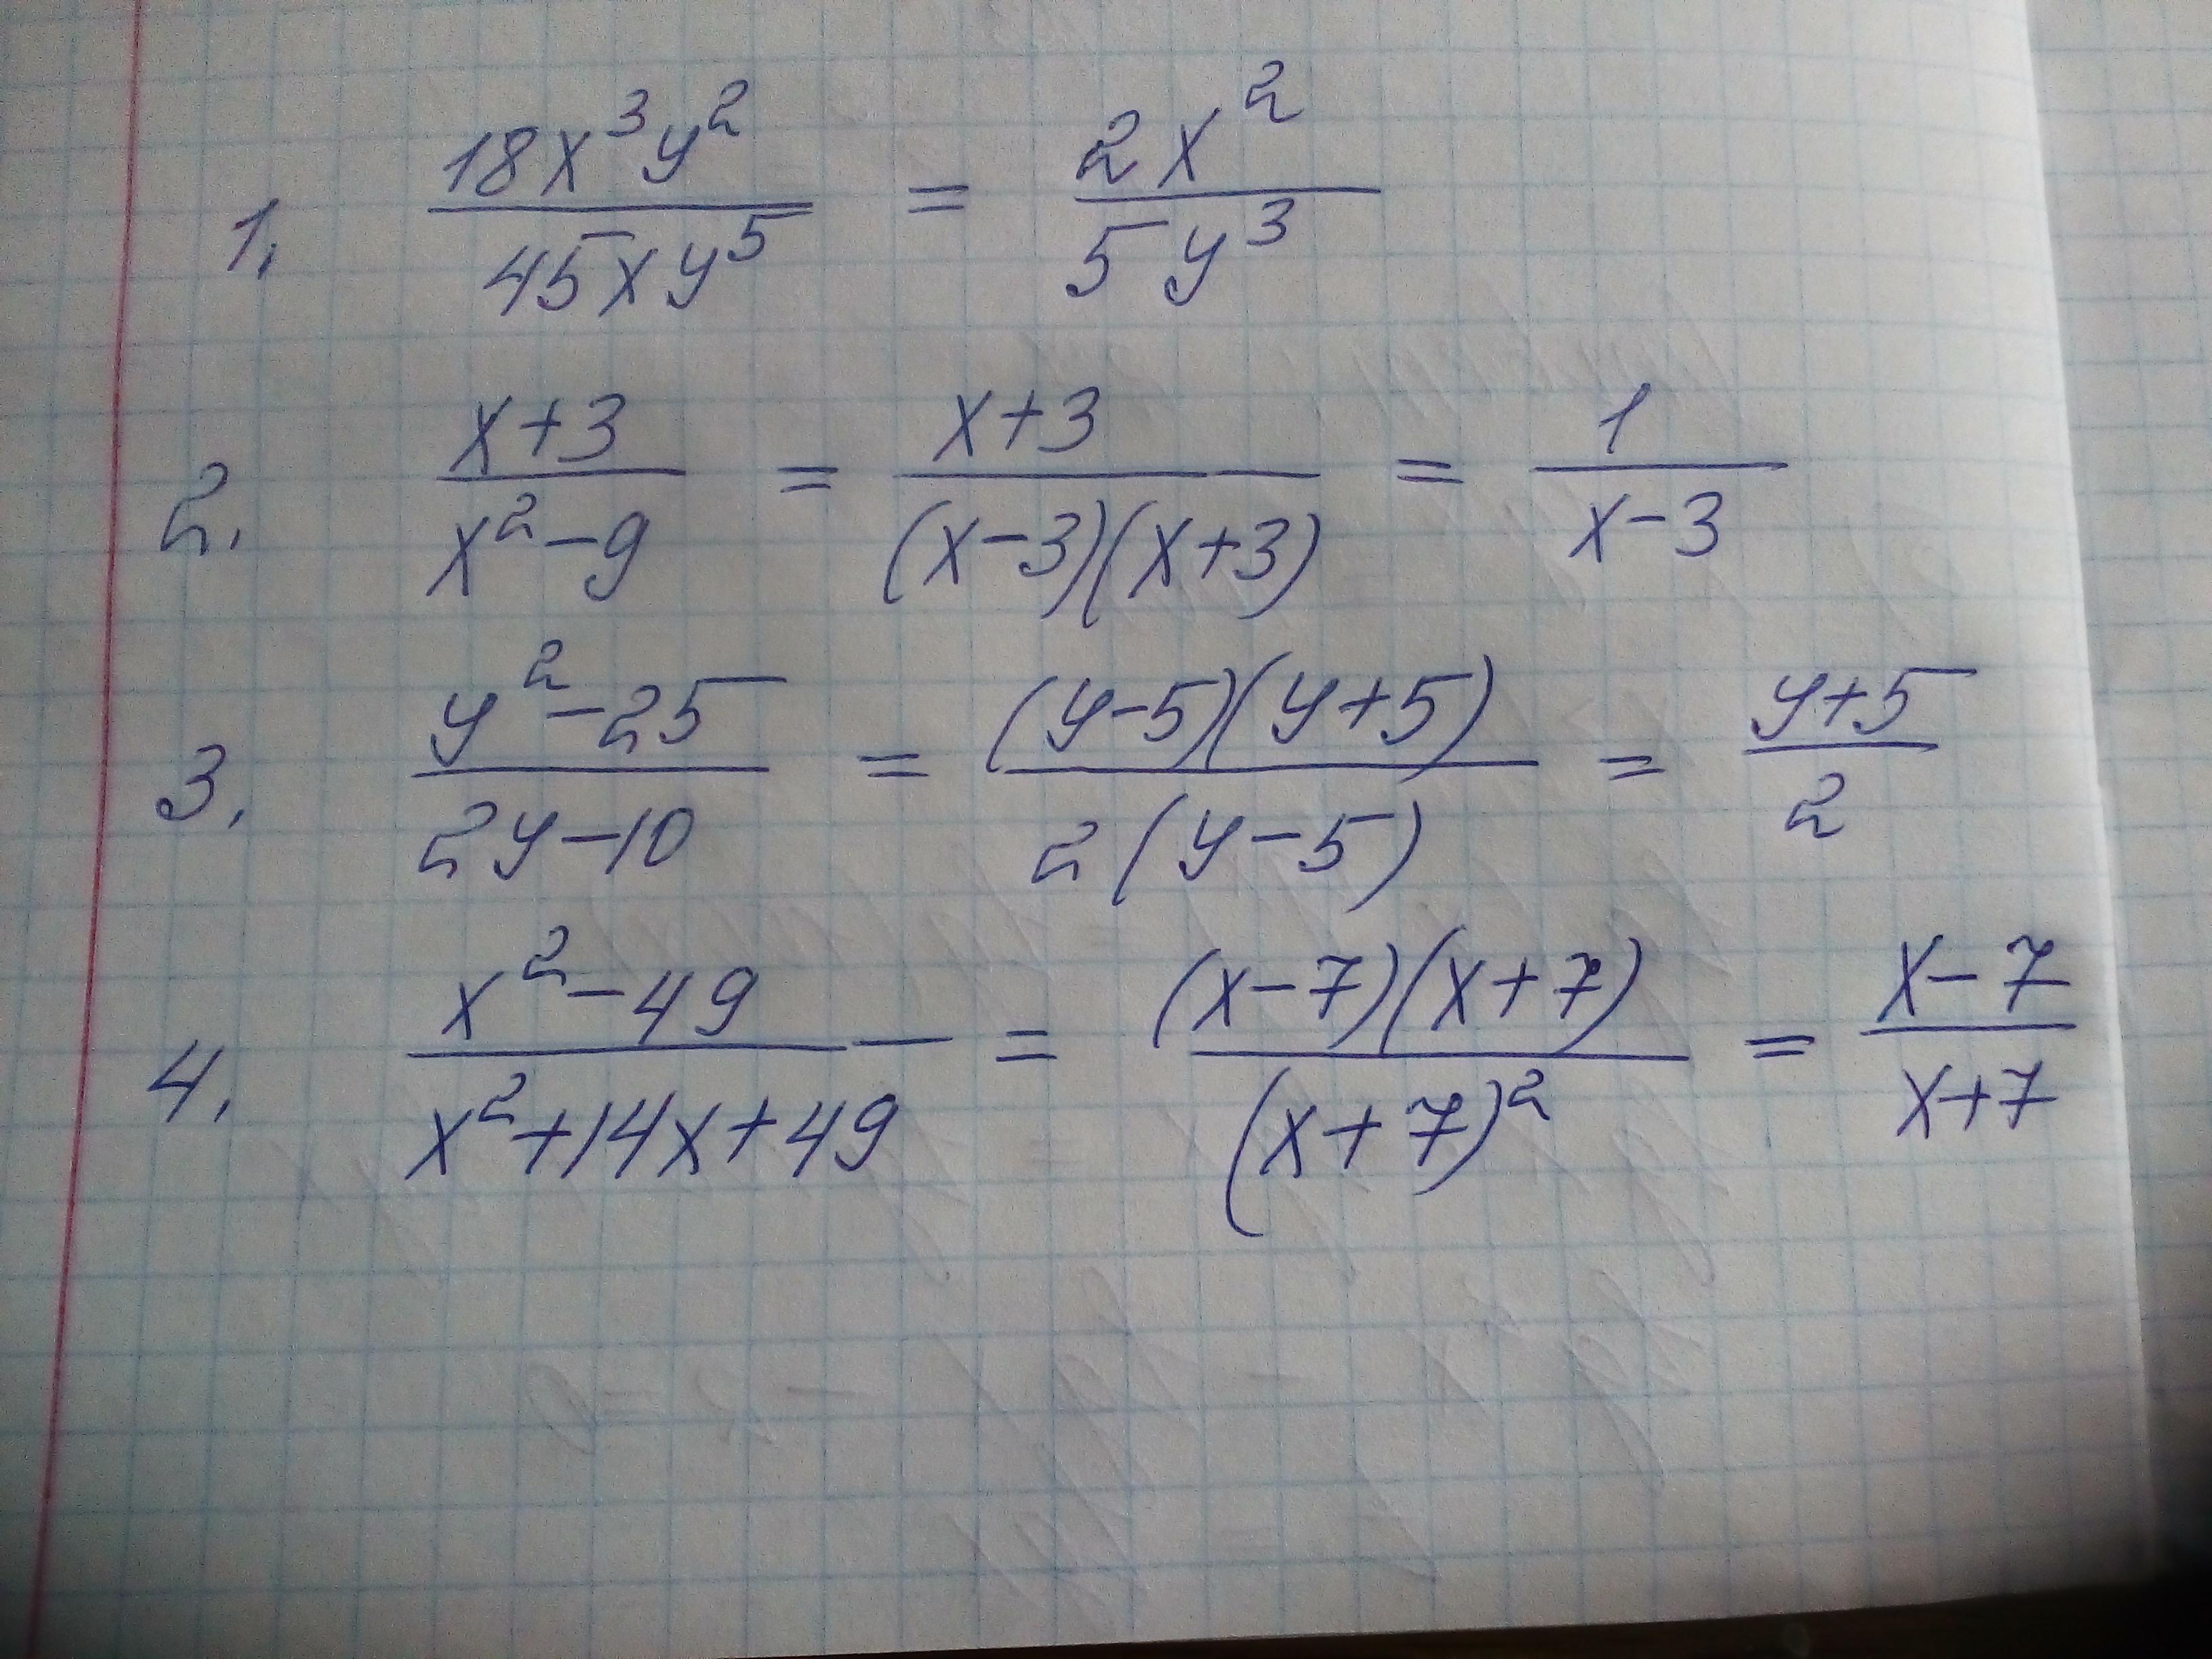 1. 18x³y²/45xy⁵ = 2x²/5y³
2. x+3/x²-9 = x+3/(x-3)(x+3) = 1/x-3
3. y²-25/2y-10 = (y-5)(y+5)/2(y-5) = y+5/2
4. x²-49/x²+14x+49 = (x-7)(x+7)/(x+7)² = x-7/x+7